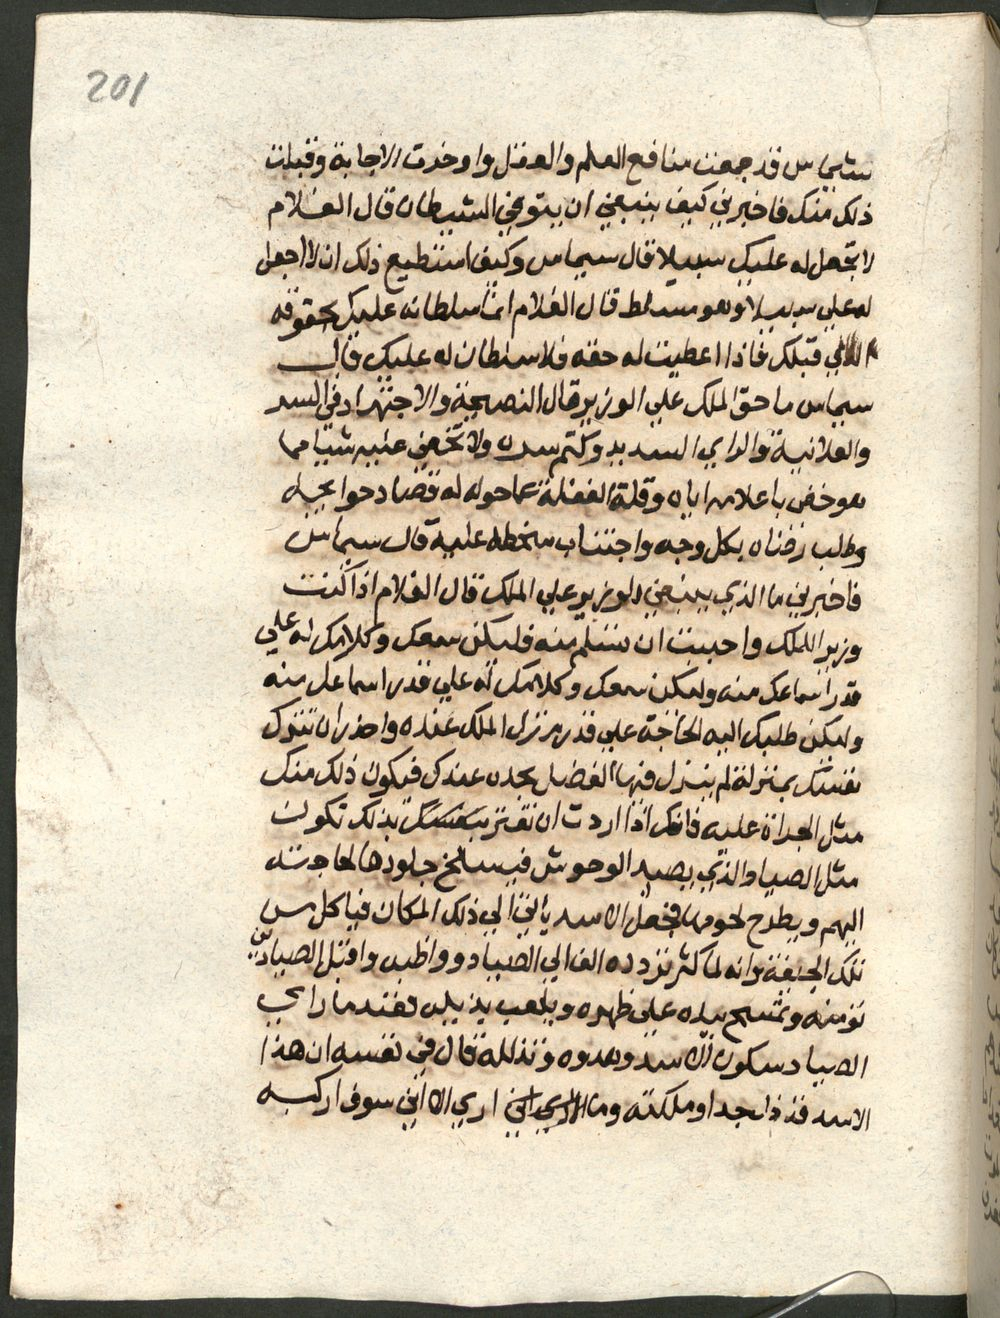 201
شيماس قد جمعت منافع العلم والعقل واوخدت الاجابة وقبلت
ذلك منك فاخبرني كيف ينبغي ان يتوخي الشيطان قال الغلام
لا تجعل له عليك سبيلا قال سيماس وكيف استطيع ذلك ان لا اجعل
له علي سبيلا وهو مسلط قال الغلام انما سلطانه عليك بحقوقه
التي قبلك فاذا اعطيت له حقه فلا سلطان له عليك قال
سيماس ما حق الملك علي الوزير قال النصيحة والاجتهاد في السر
والعلانية والراي السديد وكتم سره ولا تخفي عنيه شيا مما
هو حض باعلامه اياه وقلة الغفلة عما حوله له قضاد حوايجه
وطلب رضاه بكل وجه واجتناب سخطه عليه قال سيماس
فاخبرني ما الذي ينبغي الوزير علي الملك قال الغلام اذا كنت
وزير الملك واحببت ان تسلم منه فليكن سمعك وكلامك له علي
قدر اسماعك منه وليكن سمعك وكلامك له علي قدر اسماعك منه
وليكن طلبك اليه الحاجة علي قدر منزل الملك عنده واحذر ان تنزل
نفسك بمنزلة لم ينزل فيها الفضل بحده عندك فيكون ذلك منك
مثل الجراة عليه فانك اذا اردت ان تغتر بنفسك بذلك تكون
مثل الصياد الذي يصيد الوحوش فيسلخ جلودها لحاجته
اليهم ويطرح لحومها فجعل الاسد ياتي الي ذلك المكان فياكل من
تلك الجيفة وانه لما كثر تردده الف الي الصياد وواظبه واقبل الصياد
نومنه وتمسح يده علي ظهره ويلعب بذيله فعندما راي
الصياد سكون الاسد وهدوه وتذلله قال في نفسه ان هذا
الاسد قد ذل جدا وملكته وما اري الا اني سوف اركبه